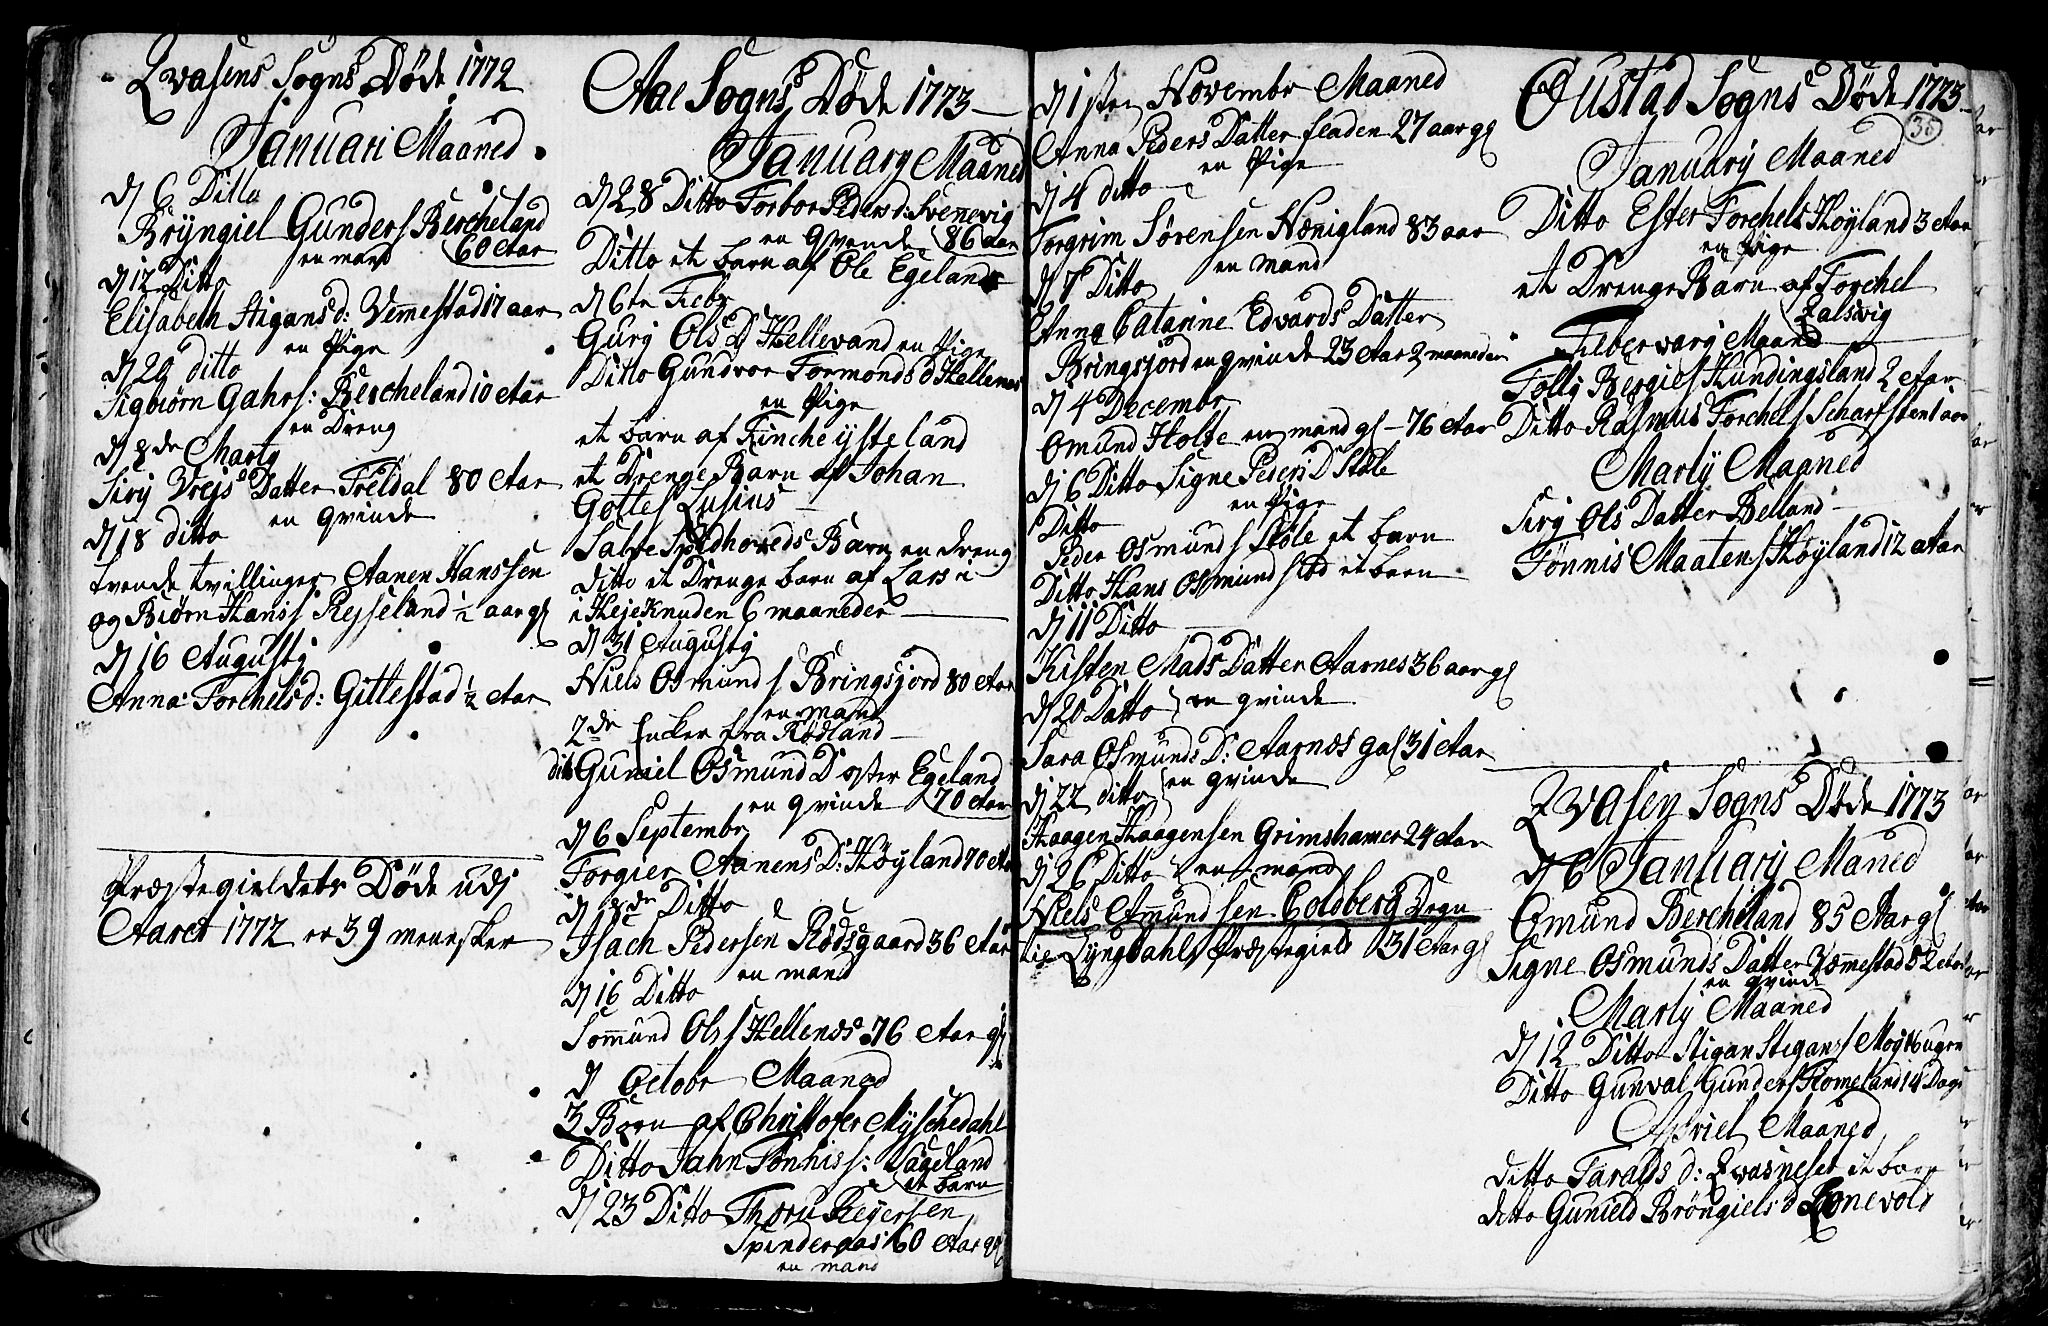 Qvasens Sogns Døde 1772
Januari Maaned
d 6 Ditto
Brÿngiel Gunders Bercheland
en mand 60 Aar
d 12 Ditto
Elisabeth Stigans d: Vemmestad 17 aar
en Pige
d 20 ditto
Sigbiørn Gahrs: Bercheland 10 Aar
en Dreng
d 8de Marty
Sirÿ Datter Treldal 80 Aar
en Qvinde
d 18 ditto
tvende tvillinger Aanen Hanssen
og Biørn Hans Reÿseland ½ aar gl
d 16 Augustj
Anna Torchels d: Gittlestad ½ Aar
Præstegieldets Døde udj
Aaret 1772 er 39 mennesker
Aae Sogns Døde 1773
Januarÿ Maaned
d 28 Ditto Torbor Peders d: Svenevig
en Qvende 86 aar
Ditto et barn af Ole Egeland
d 6te Febr
Gurÿ Ols D Hellevand en Pige
Ditto Gundvor Tormonds d Hellenes
en Pige
et barn af Tinche ÿsteland
et Drenge Barn af Johan
Gottes Lusius
Salve Spedhoveds Barn en dreng
ditto et Drenge barn af Lars i
i Hejeknuden 6 maaneder
d 31 Augustÿ
Niels Osmunds Bringsjord 80 Aar
en mand
2de Encker fra Rødland
dito Guniel Osmund D øster Egeland
en qvinde 70 Aar
d 6 Septembr
Torgier Aanens D: Høÿland 70 Aar
d 8de Ditto
Isach Pedersen Rødsgaard 36 Aar
en mand
d 16 Ditto
Tommund Ols Hellenes 76 Aar gl
d Octobr Maaned
3 Børn af Christofer Mÿschedahl
Ditto Jahn Tønnis s: Vageland
et barn
d 23 Ditto Thoru Reÿersen
Spinderaas 60 Aar gl
en mand
d 1sten Novembr Maaned
Anna Peders Datter fladen 27 aar gl
en Pige
d 4 ditto
Torgrim Sørensen Nønigland 83 aar
en mand
d 7 Ditto
Anna Catarine Edvards Datter
Bringsjord en qvinde 23 Aar 2 maaneder
d 4 Decembr
Omund Holte en mand gl 76 Aar
d 6 Ditto Signe Peders D Støle
en Pige
Ditto
Peder Osmunds Støle et barn
Ditto Hans Osmund et barn
d 11 Ditto
Kisten Mads Datter Aarnes 36 aar gl
en qvinde
d 20 Ditto
Sara Osmunds D: Aarnes gal 31 Aar
en qvinde
d 22 ditto
Haagen Haagensen Grimshamer 24 Aar
en mand
d 26 Ditto
Niels Amundsen Goldberg Degn
Lÿngdahls Præstegield 31 Aar gl
35
Qustad Sogns Døde 1773
Januarÿ Maaned
Ditto Ester Torchels Høyland 3 Aar
en Pige
et Drenge Barn af Torchel
Galswig
Feberwarÿ Maaned
Tolly Bergies Kundingsland 2 Aar
Ditto Rasmus Torchels Scharfsten 1 aar
Martÿ Maaned
Sirÿ Ols Datter Belland
Tønnis Maatens Høÿland 12 Aar
Qvasen Sogns Døde 1773
d 6 Januarÿ Maned
Omund Bercheland 85 Aar gl
Signe Osmunds Datter Vemmestad 82 Aar
en qvinde
Martÿ Maaned
d 12 Ditto Stigan Stigans Moÿ 16 ugen
Ditto Gunval Gunders Homeland 14 Dage
Apriel Maaned
ditto Taralds d: Qvasneset et barn
ditto Gunield Brøngiels d Egnevold